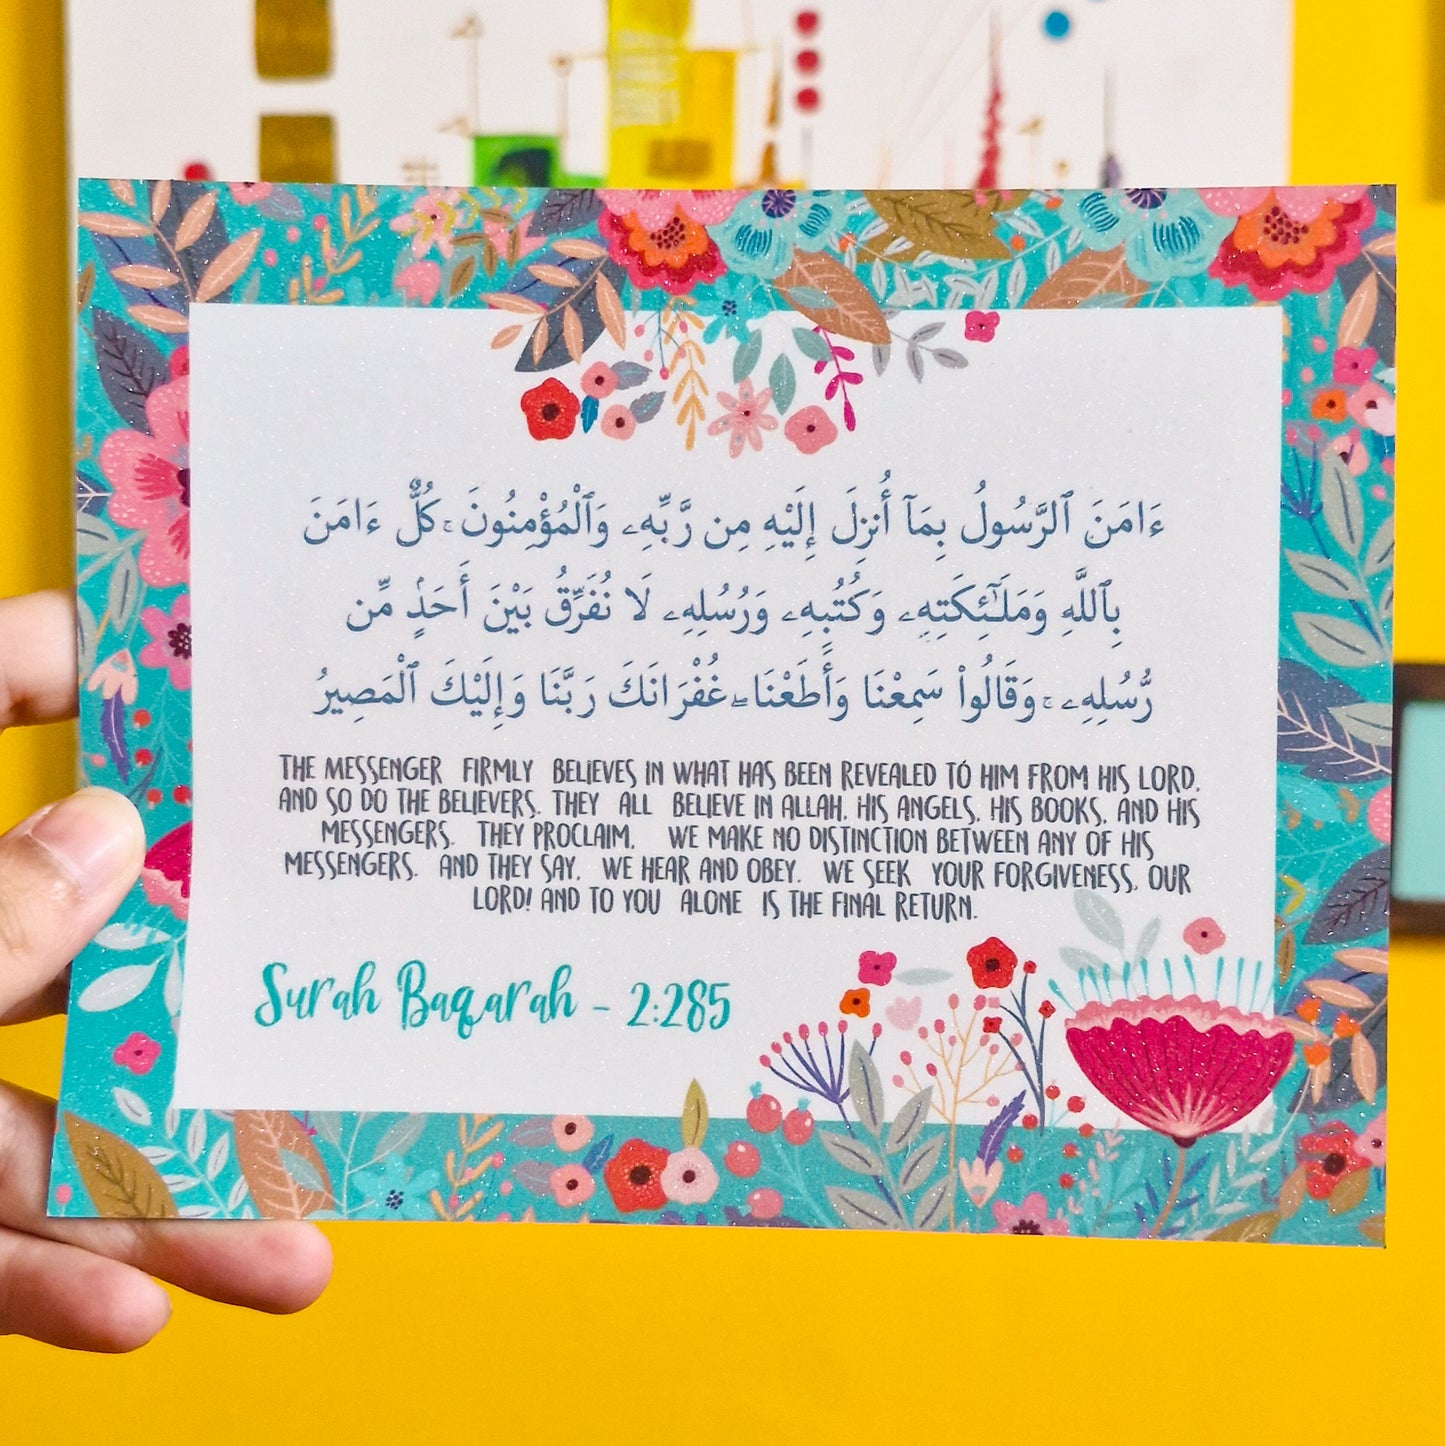 ءَامَنَ ٱلرَّسُولُ بِمَآ أُنزِلَ إِلَيْهِ مِن رَّبِّهِۦ وَٱلْمُؤْمِنُونَ ۚ كُلٌّ ءَامَنَ
بِٱللَّهِ وَمَلَـٰٓئِكَتِهِۦ وَكُتُبِهِۦ وَرُسُلِهِۦ لَا نُفَرِّقُ بَيْنَ أَحَدٍۢ مِّن
رُّسُلِهِۦ ۚ وَقَالُوا۟ سَمِعْنَا وَأَطَعْنَا ۖ غُفْرَانَكَ رَبَّنَا وَإِلَيْكَ ٱلْمَصِيرُ
THE MESSENGER FIRMLY BELIEVES IN WHAT HAS BEEN REVEALED TO HIM FROM HIS LORD,
AND SO DO THE BELIEVERS. THEY ALL BELIEVE IN ALLAH, HIS ANGELS, HIS BOOKS, AND HIS
MESSENGERS. THEY PROCLAIM, WE MAKE NO DISTINCTION BETWEEN ANY OF HIS
MESSENGERS. AND THEY SAY, WE HEAR AND OBEY. WE SEEK YOUR FORGIVENESS, OUR
LORD! AND TO YOU ALONE IS THE FINAL RETURN.
Surah Baqarah - 2:285